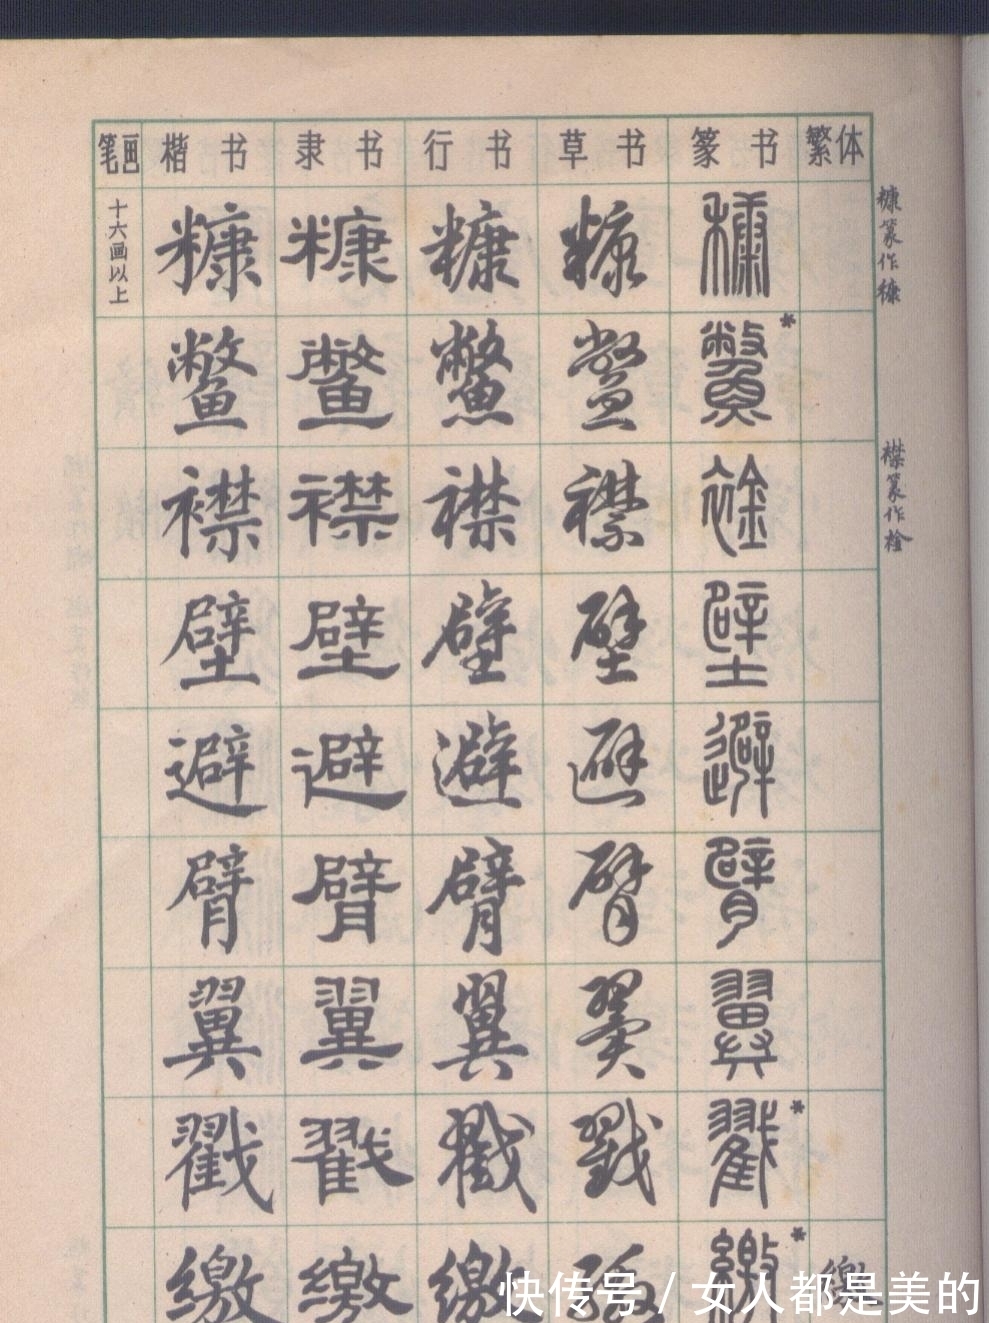 笔画 楷书 隶书 行书 草书 篆书 繁体
十六画以上 糠 糠 糠 糠 糠 糠篆作穅
鳖 鳖 鳖 鳖 鳖*
襟 襟 襟 襟 䘳 襟篆作䘳
壁 壁 壁 壁 壁
避 避 避 避 避
臂 臂 臂 臂 臂
翼 翼 翼 翼 翼
戳 戳 戳 戳 戳*
缴 缴 缴 缴 缴* 繳
快传号 / 女人都是美的